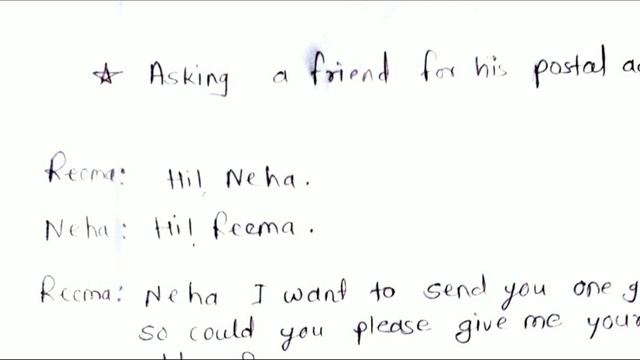 ☆ Asking a friend for his postal
Reema: Hi! Neha.
Neha: Hi! Reema.
Reema: Neha I want to send you one
so could you please give me your